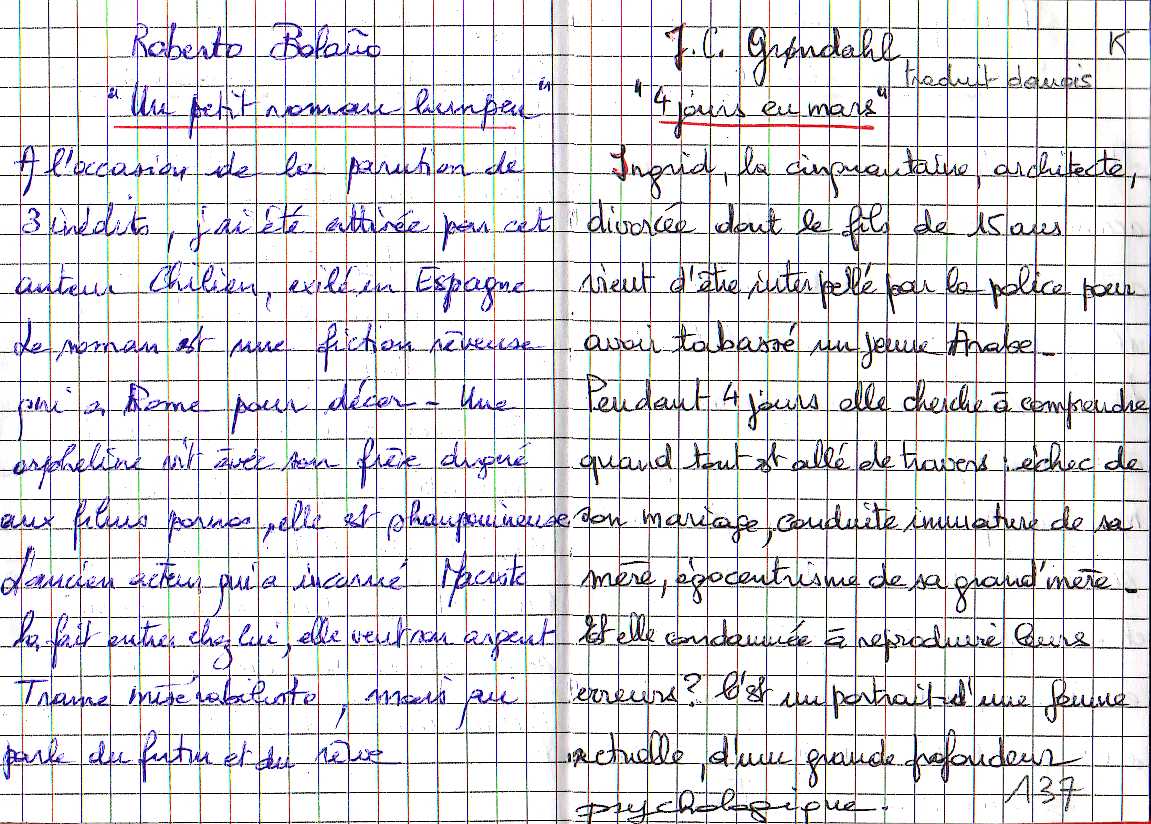 Roberto Bolaño
"Un petit roman lumpen"
A l'occasion de la parution de
3 inédits, j'ai été attirée par cet
auteur Chilien, exilé en Espagne
Le roman est une fiction rêveuse
qui a Rome pour décor - Une
orpheline vit avec son frère drogué
aux films pornos, elle est shampouineuse
L'ancien acteur qui a incarné Maciste
la fait entrer chez lui, elle veut son argent
Trame misérabiliste, mais qui
parle du futur et du rêve
J.C. Grøndahl K
traduit danois
"4 jours en mars"
Ingrid, la cinquantaine, architecte,
divorcée dont le fils de 15 ans
vient d'être interpellé par la police pour
avoir tabassé un jeune Arabe -
Pendant 4 jours elle cherche à comprendre
quand tout est allé de travers : échec de
son mariage, conduite immature de sa
mère, égocentrisme de sa grand'mère -
Est elle condamnée à reproduire leurs
erreurs ? C'est un portrait d'une femme
actuelle, d'une grande profondeur
psychologique.
137